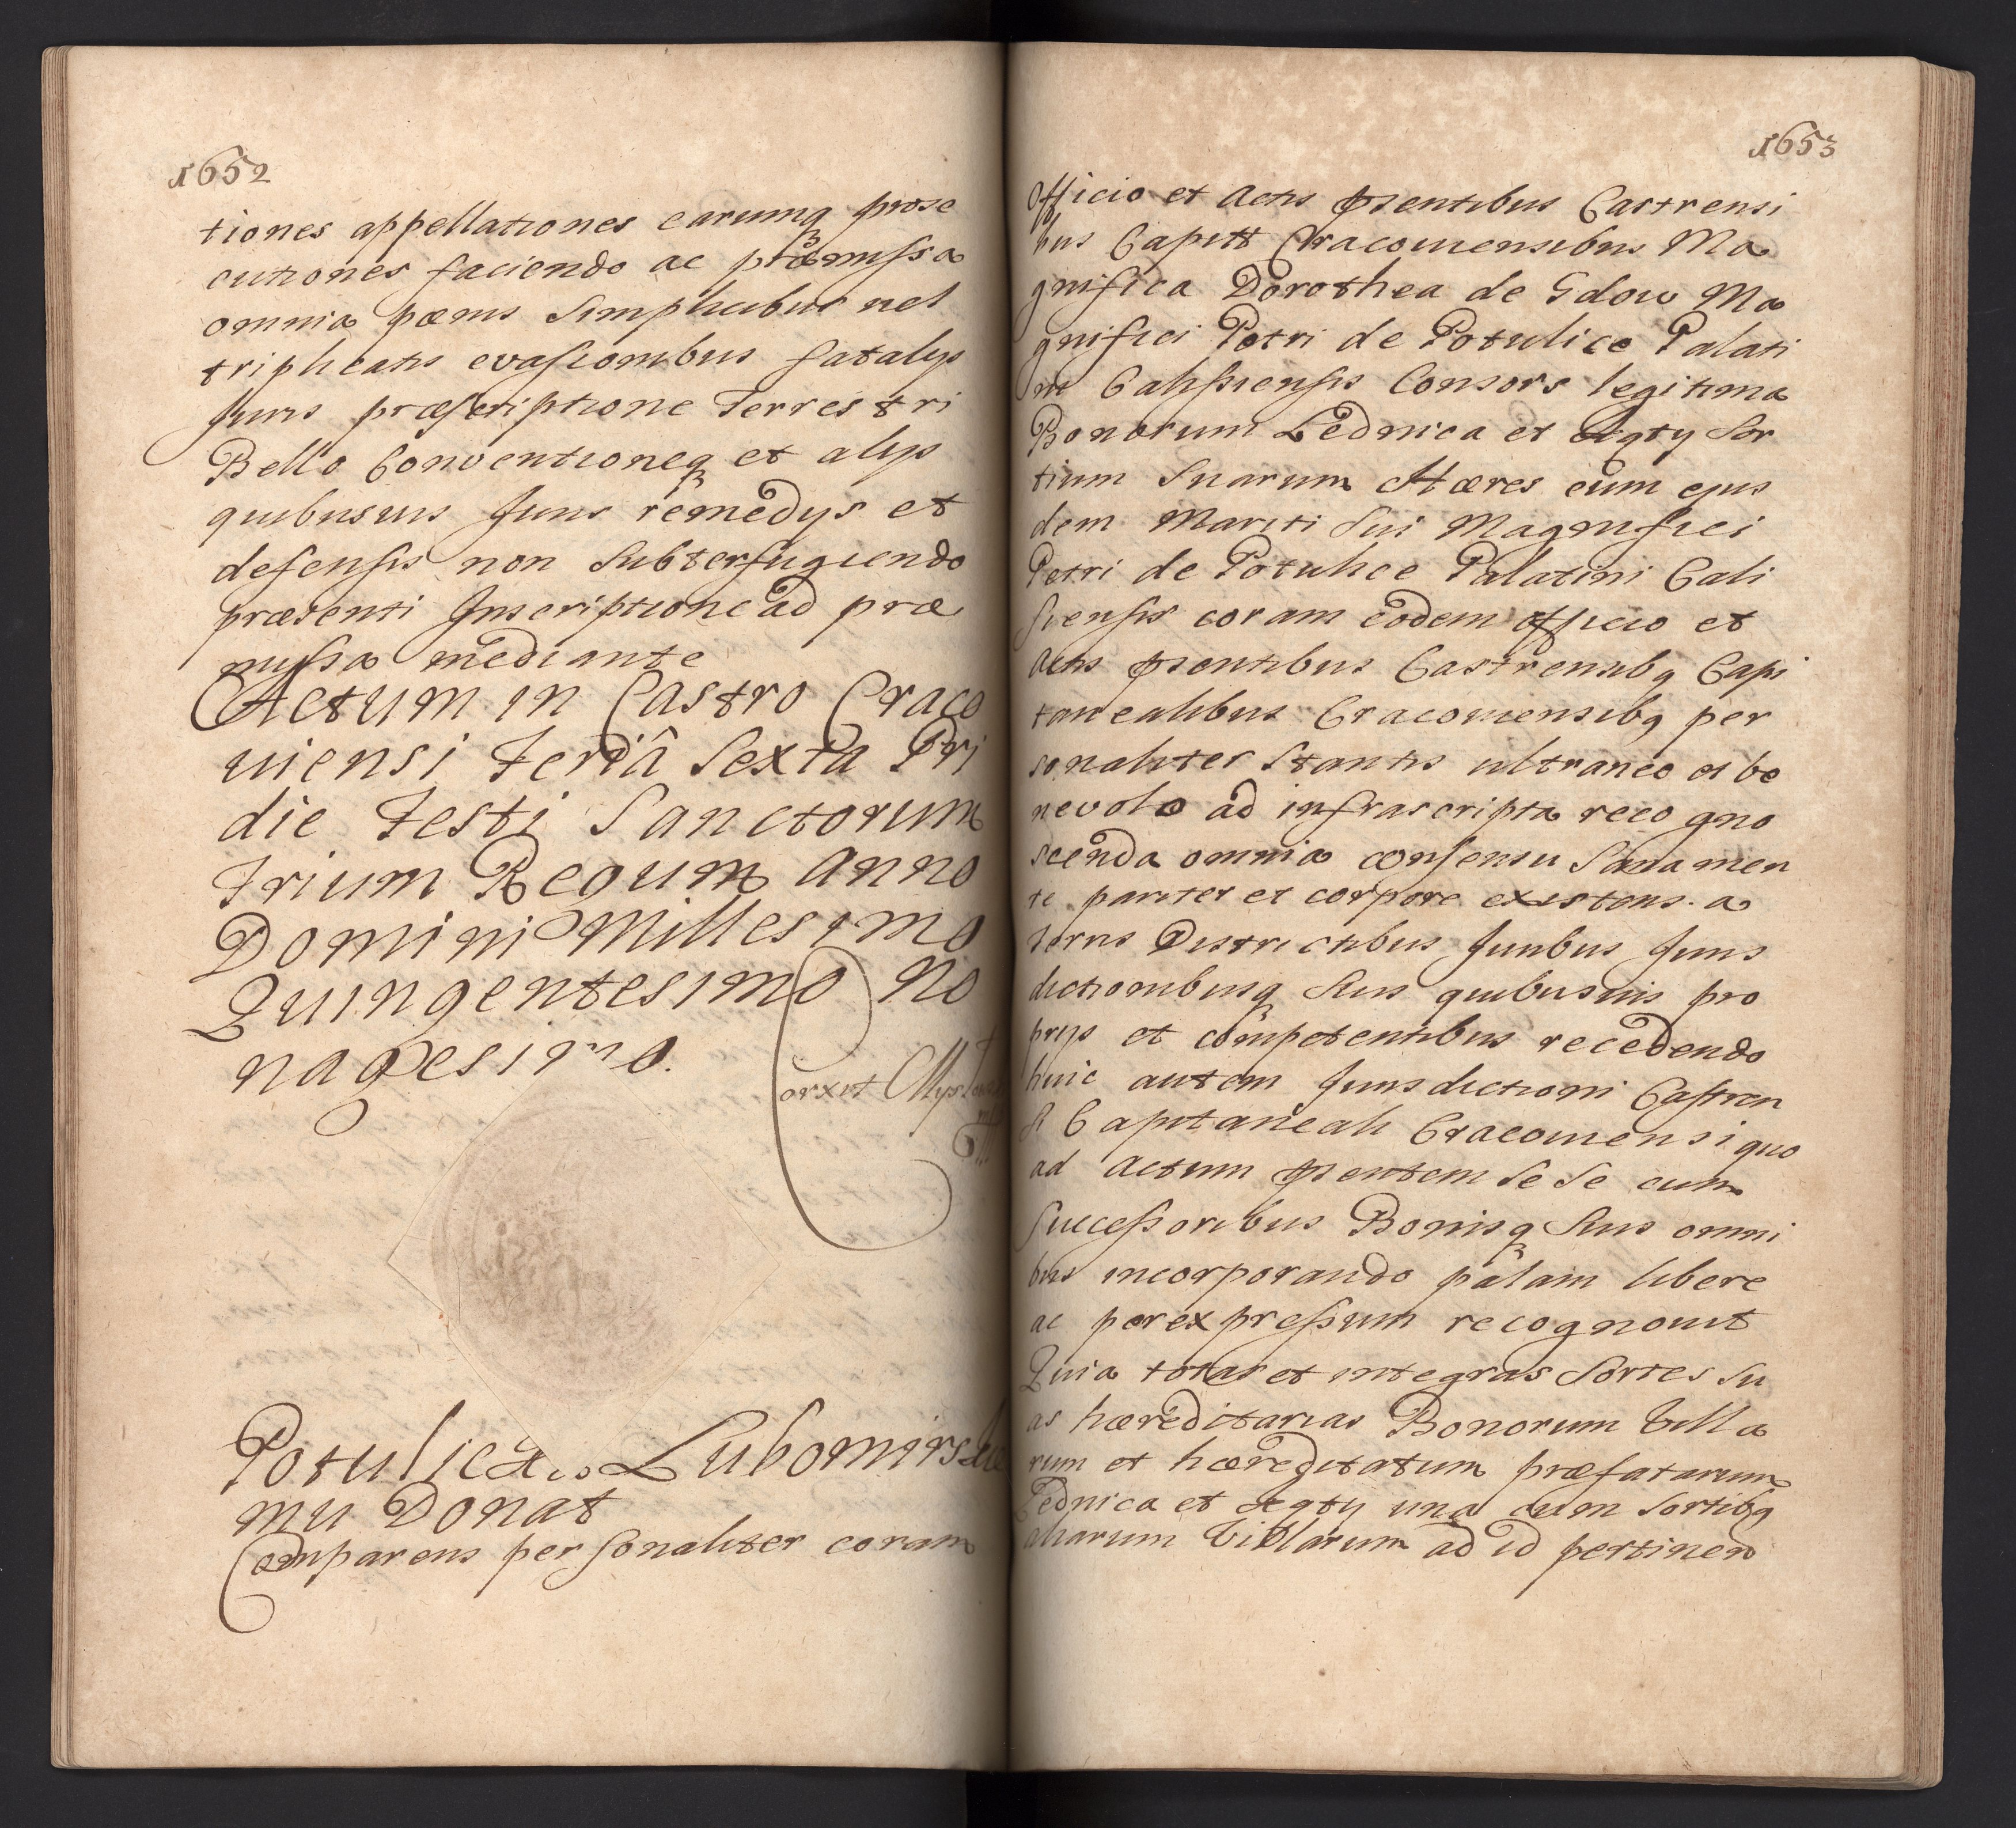 1652
tiones appellationes earumq prose
cutiones faciendo ac præmissa
omnia pænis simplicibus vel
triplicatis evasionibus fatalys
Juris præscriptione Terrestri
Bello Conventioneq et alys
quibusuis Juris remedys et
defensis non subterfugiendo
præsenti Inscriptione ad præ
missa mediante
Actum in Castro Craco
uiensi Feriâ Sexta Pri
die Festi Sanctorum
Trium Regum Anno
Domini Millesimo
Quingentesimo No
nagesimo.
Corrxit
Potulicka Lubomirs
mu Donat
Comparens personaliter coram
1653
Officio et Actis psentibus Castrensi
bus Capitt Cracouiensibus Ma
gnifica Dorothea de Gdow Ma
gnifici Petri de Potulice Palati
ni Calissiensis Consors legitima
Bonorum Lednica et cęty Sor
tium Suarum Hæres cum ejus
dem Mariti Sui Magnifici
Petri de Potulice Palatini Cali
siensis coram eodem officio et
Actis psentibus Castrensibq Capi
tanealibus Cracouiensibq per
sonaliter Stantis ultraneo et be
nevolo ad infrascripta recogno
scenda omnia consensu Sana men
te pariter et corpore existens a
terris Districtibus Juribus Juris
dictionibusq Suis quibusuis pro
prys et competentibus recedendo
huic autem Jurisdictioni Castren
si Capitaneali Cracouiensi quo
ad Actum psentem Se Se cum
Successoribus Bonisq Suis omni
bus incorporando palam libere
ac per expressum recognouit
Quia totas et integras Sortes Su
as hæreditarias Bonorum Villa
rum et hæreditatum præfatarum
Lednica et cęty una cum Sortibq
aliarum Villarum ad id pertinen